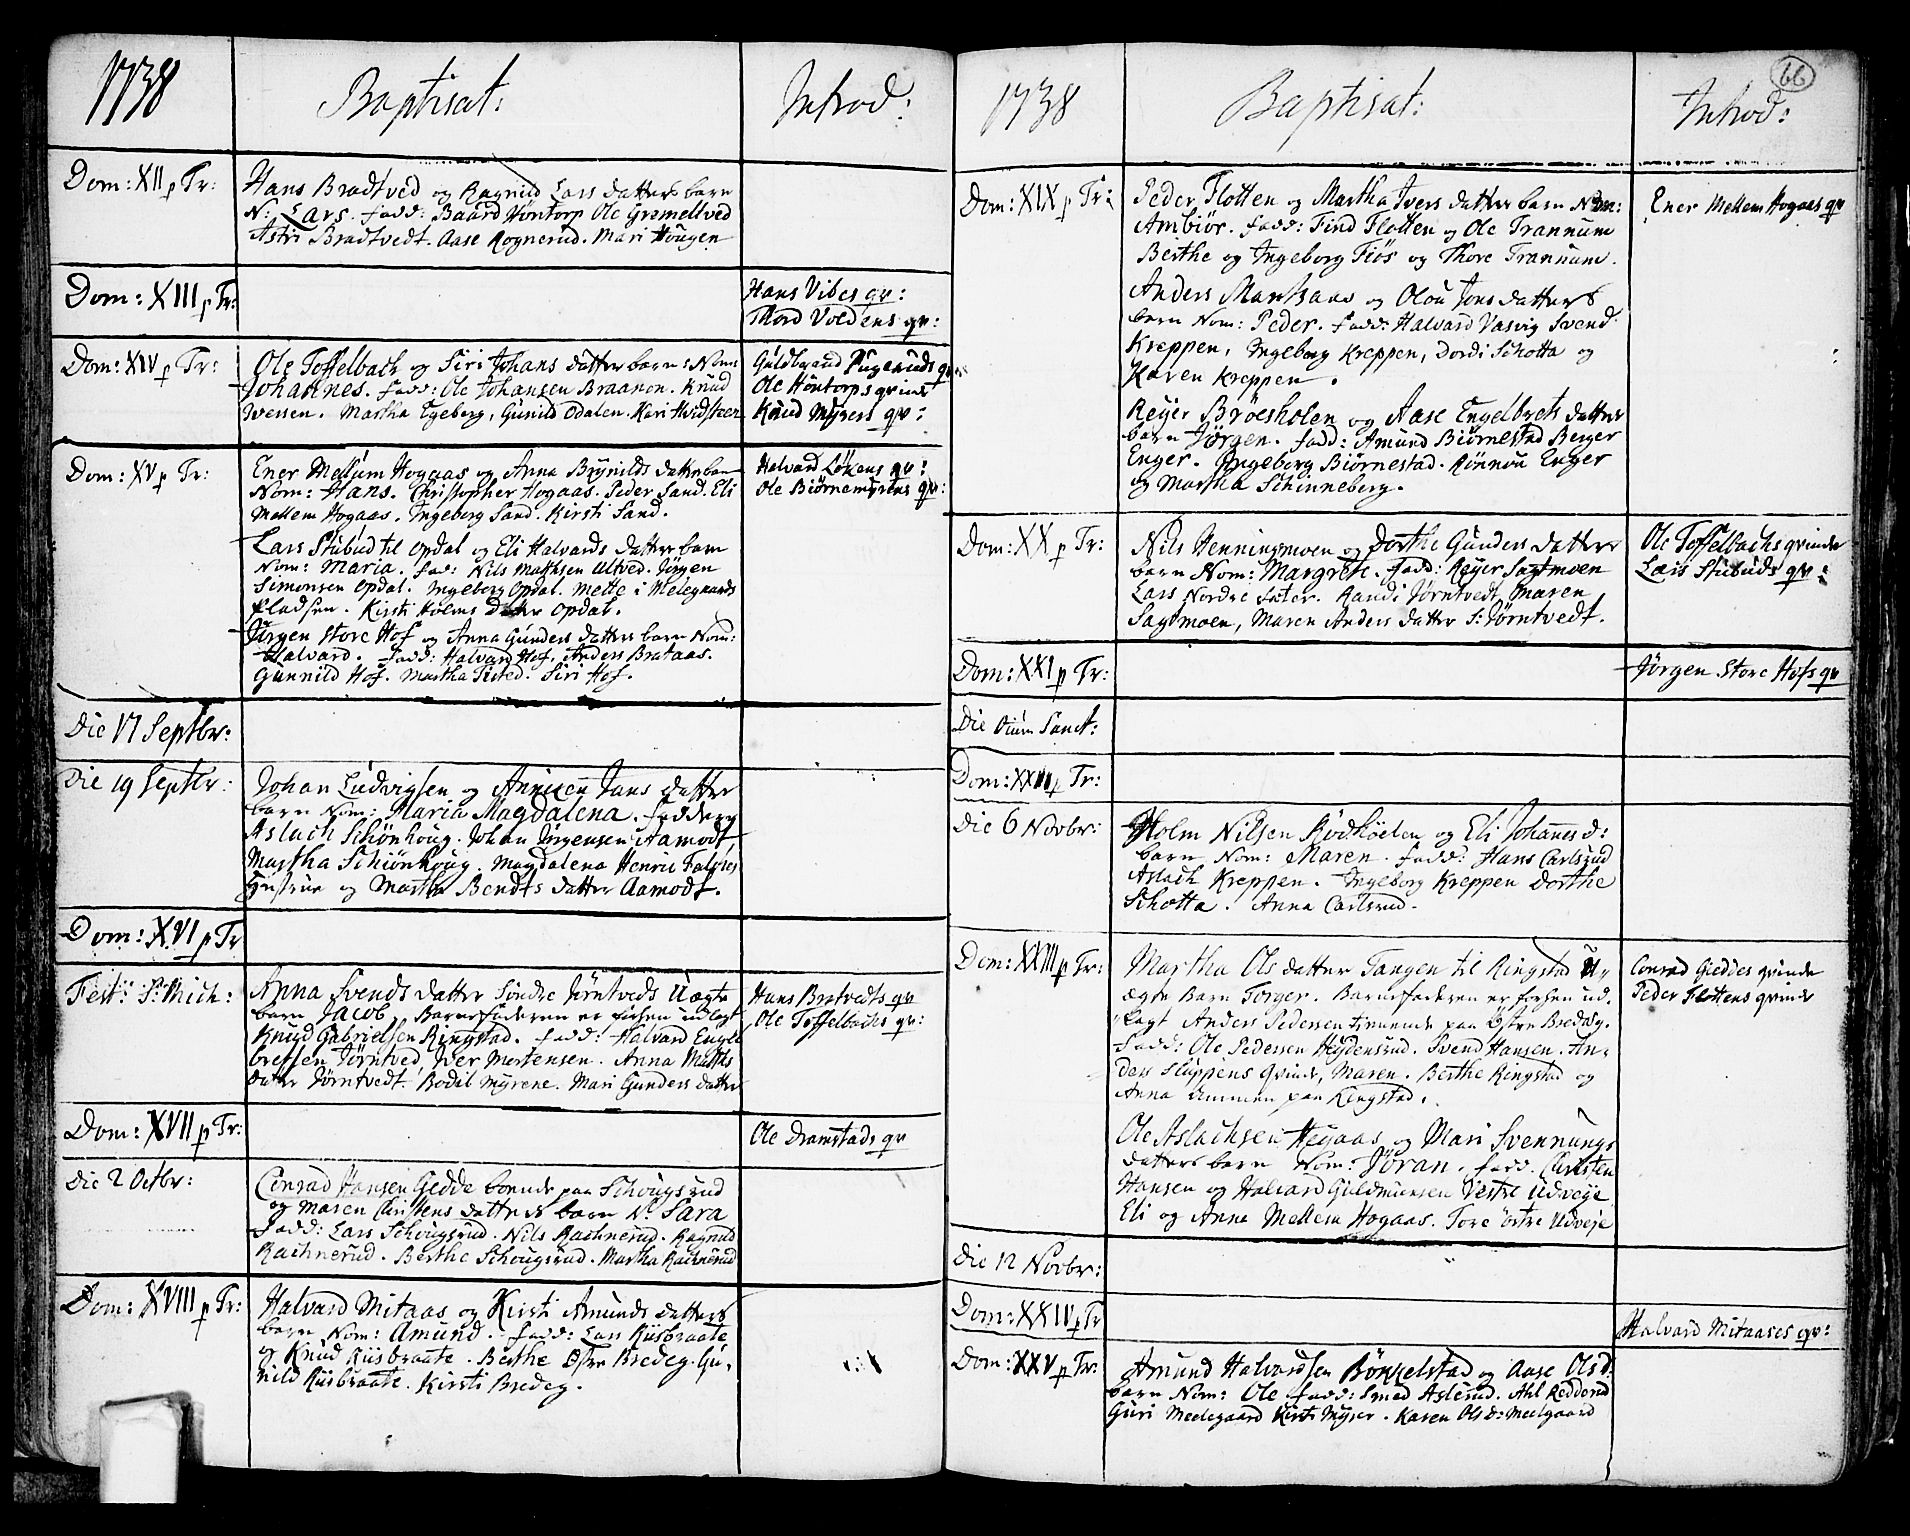 1738
Baptisat:
Introd:
Dom: XII p Tr:
Hans Bradtved og Ragnild Lars datters barn
N: Lars. fadd: Baard Höntorp Ole Gromeltved
Astri Bradtvedt. Aase Rognerud. Mari Hougen
Dom: XIII p Tr:
Hans Vibes qv:
Thord Voldens qv:
Dom: XIV p Tr:
Ole Toffelbach og Siri Johans datter barn: Nom:
Johannes. fadd: Ole Johansen Braanon. Knud
Wessen. Martha Tygeberg, Gunild Odalen. Kari Hvidsteen
Guldbrand
Ole Höntorps qvinde
Knud Myrens qv:
Dom: XV p Tr:
Ener Mellum Hogaas og Anna Brynilds datter barn
Nom: Hans. Christopher Hogaas. Peder Sand. Eli
Mellem Hogaas. Ingeborg Sand. Kirsti Sand.
Lars Stubud til Opdal og Eli Halvards datter barn
Nom: Maria. fad: Nils Matthsen Ultved. Jörgen
Simonsen Opdal. Ingeborg Opdal. Mette i Melegaards
Pladsen. Kirsti Holms datter Opdal.
Jörgen Store Hof og Anna Gunders datters barn Nom:
Halvard. fadd: Halvard Hof. Anders Brataas.
Gunnild Hof. Martha Tisted. Siri Hof.
Halvard Lökens qv:
Ole Biörnemyrens qv:
Die 17 Septbr:
Die 19 Septbr:
Johan Ludvigsen og Anniken Jans datter
barn Nom: Maria Magdalena. faddere
Aslach Schönhoug. Johan Jörgensen Aamodt
Martha Schiönhoug. Magdalena Henric Falches
Hustrue og Martha Bendts datter Aamodt.
Dom: XVI p Tr
Fest: S: Mich:
Anna Svends datter Söndre Jörntveds Uægte
barn Jacob. Barnefaderen er forhen udlagt
Knud Gabrielsen Ringstad. fadd: Halvard Engle
bretsen Jörntved, Iver Mortensen. Anna Matths
datter Jörntvedt. Bodil Myrene. Mari Gunders datter
Hans Bratvedts qv
Ole Toffelbachs qv:
Dom: XVII p Tr:
Ole Dramstads qv
Die 2 Octbr:
Conrad Hansen Gedde boende paa Schougsrud
og Maren Christens datters barn N: Sara
Fadd: Lars Schougsrud. Nils Rachnerud. Ragnild
Rachnerud. Berthe Schougsrud. Martha Rachnerud
Dom: XVIII p Tr:
Halvard Mitaas og Kirsti Amunds datters
barn Nom: Amund. fadd: Lars Riisbraate
og Knud Riisbraate. Berthe Östre Bredeg. Gu-
nild Riisbraate. Kirsti Bredeg.
66
1738
Baptisat:
Introd:
Dom: XIX p Tr:
Peder Flotten og Martha Ivers datter barn Nom:
Ambiör. fadd: Find Flotten og Ole Trannum
Berthe og Ingeborg Fiös og Thore Trannum.
Anders Mansaas og Olou Jons datters
barn Nom: Peder. fadd: Halvard Vasvig Svend
Kreppen, Ingeborg Kreppen, Dordi Schotta og
Karen Kreppen.
Reyer Bröesholen og Aase Engelbrets datter
barn Jörgen. fadd: Amund Biörnestad Berger
Enger. Ingeborg Biörnestad. Rönnou Enger
og Martha Schinneberg.
Ener Mellem Hogaas qv
Dom: XX p Tr:
Nils Henningsmoen og Dorthe Gunders datter
barn Nom: Margreth. fadd: Reyer Sagtmoen
Lars Nordre Sater. Randi Jörntvedt, Maren
Sagtmoen, Maren Anders datter S: Jörntvedt.
Ole Toffelbachs qvinde
Lars Stubuds qv:
Dom: XXI p Tr:
Jörgen Store Hofs qv
Die Oium Sanct:
Dom: XXII p Tr:
Die 6 Novbr:
Holm Nilsen Rödköelen og Eli Johannes d:
barn Nom: Maren. fadd: Hans Carlsrud
Aslach Kreppen. Ingeborg Kreppen Dorthe
Schotta. Anna Carlsrud.
Dom: XXIII p Tr:
Martha Ols datter Tangen til Ringstad U-
ægte Barn Torger. Barnefaderen er forhen ud-
lagt Anders Pedersen tienende paa Östre Bredeg.
fadd: Ole Pedersen Heydensrud. Svend Hansen. An-
ders Sluppens qvinde, Maren. Berthe Ringstad og
Anna Ammen paa Ringstad.
Ole Aslachsen Hegaas og Mari Svennungs
datters barn Nom: Jöran. fadd: Christen
Hansen og Halvard Guldmunsen Vestre Udveye
Eli og Anna Mellem Hogaas. Tore östre Udveje
Conrad Gieddes qvinde
Peder Flottens qvinde
Die 12 Novbr:
Dom: XXIV p Tr
Halvard Mitaases qv:
Dom: XXV p Tr:
Amund Halvardsen Bökkelstad og Aase Olsd:
barn Nom: Ole fadd: Smed Aslerud. Ahl Redderud
Guri Medegaard Kirsti Myrer. Karen Olsd: Meelgaard